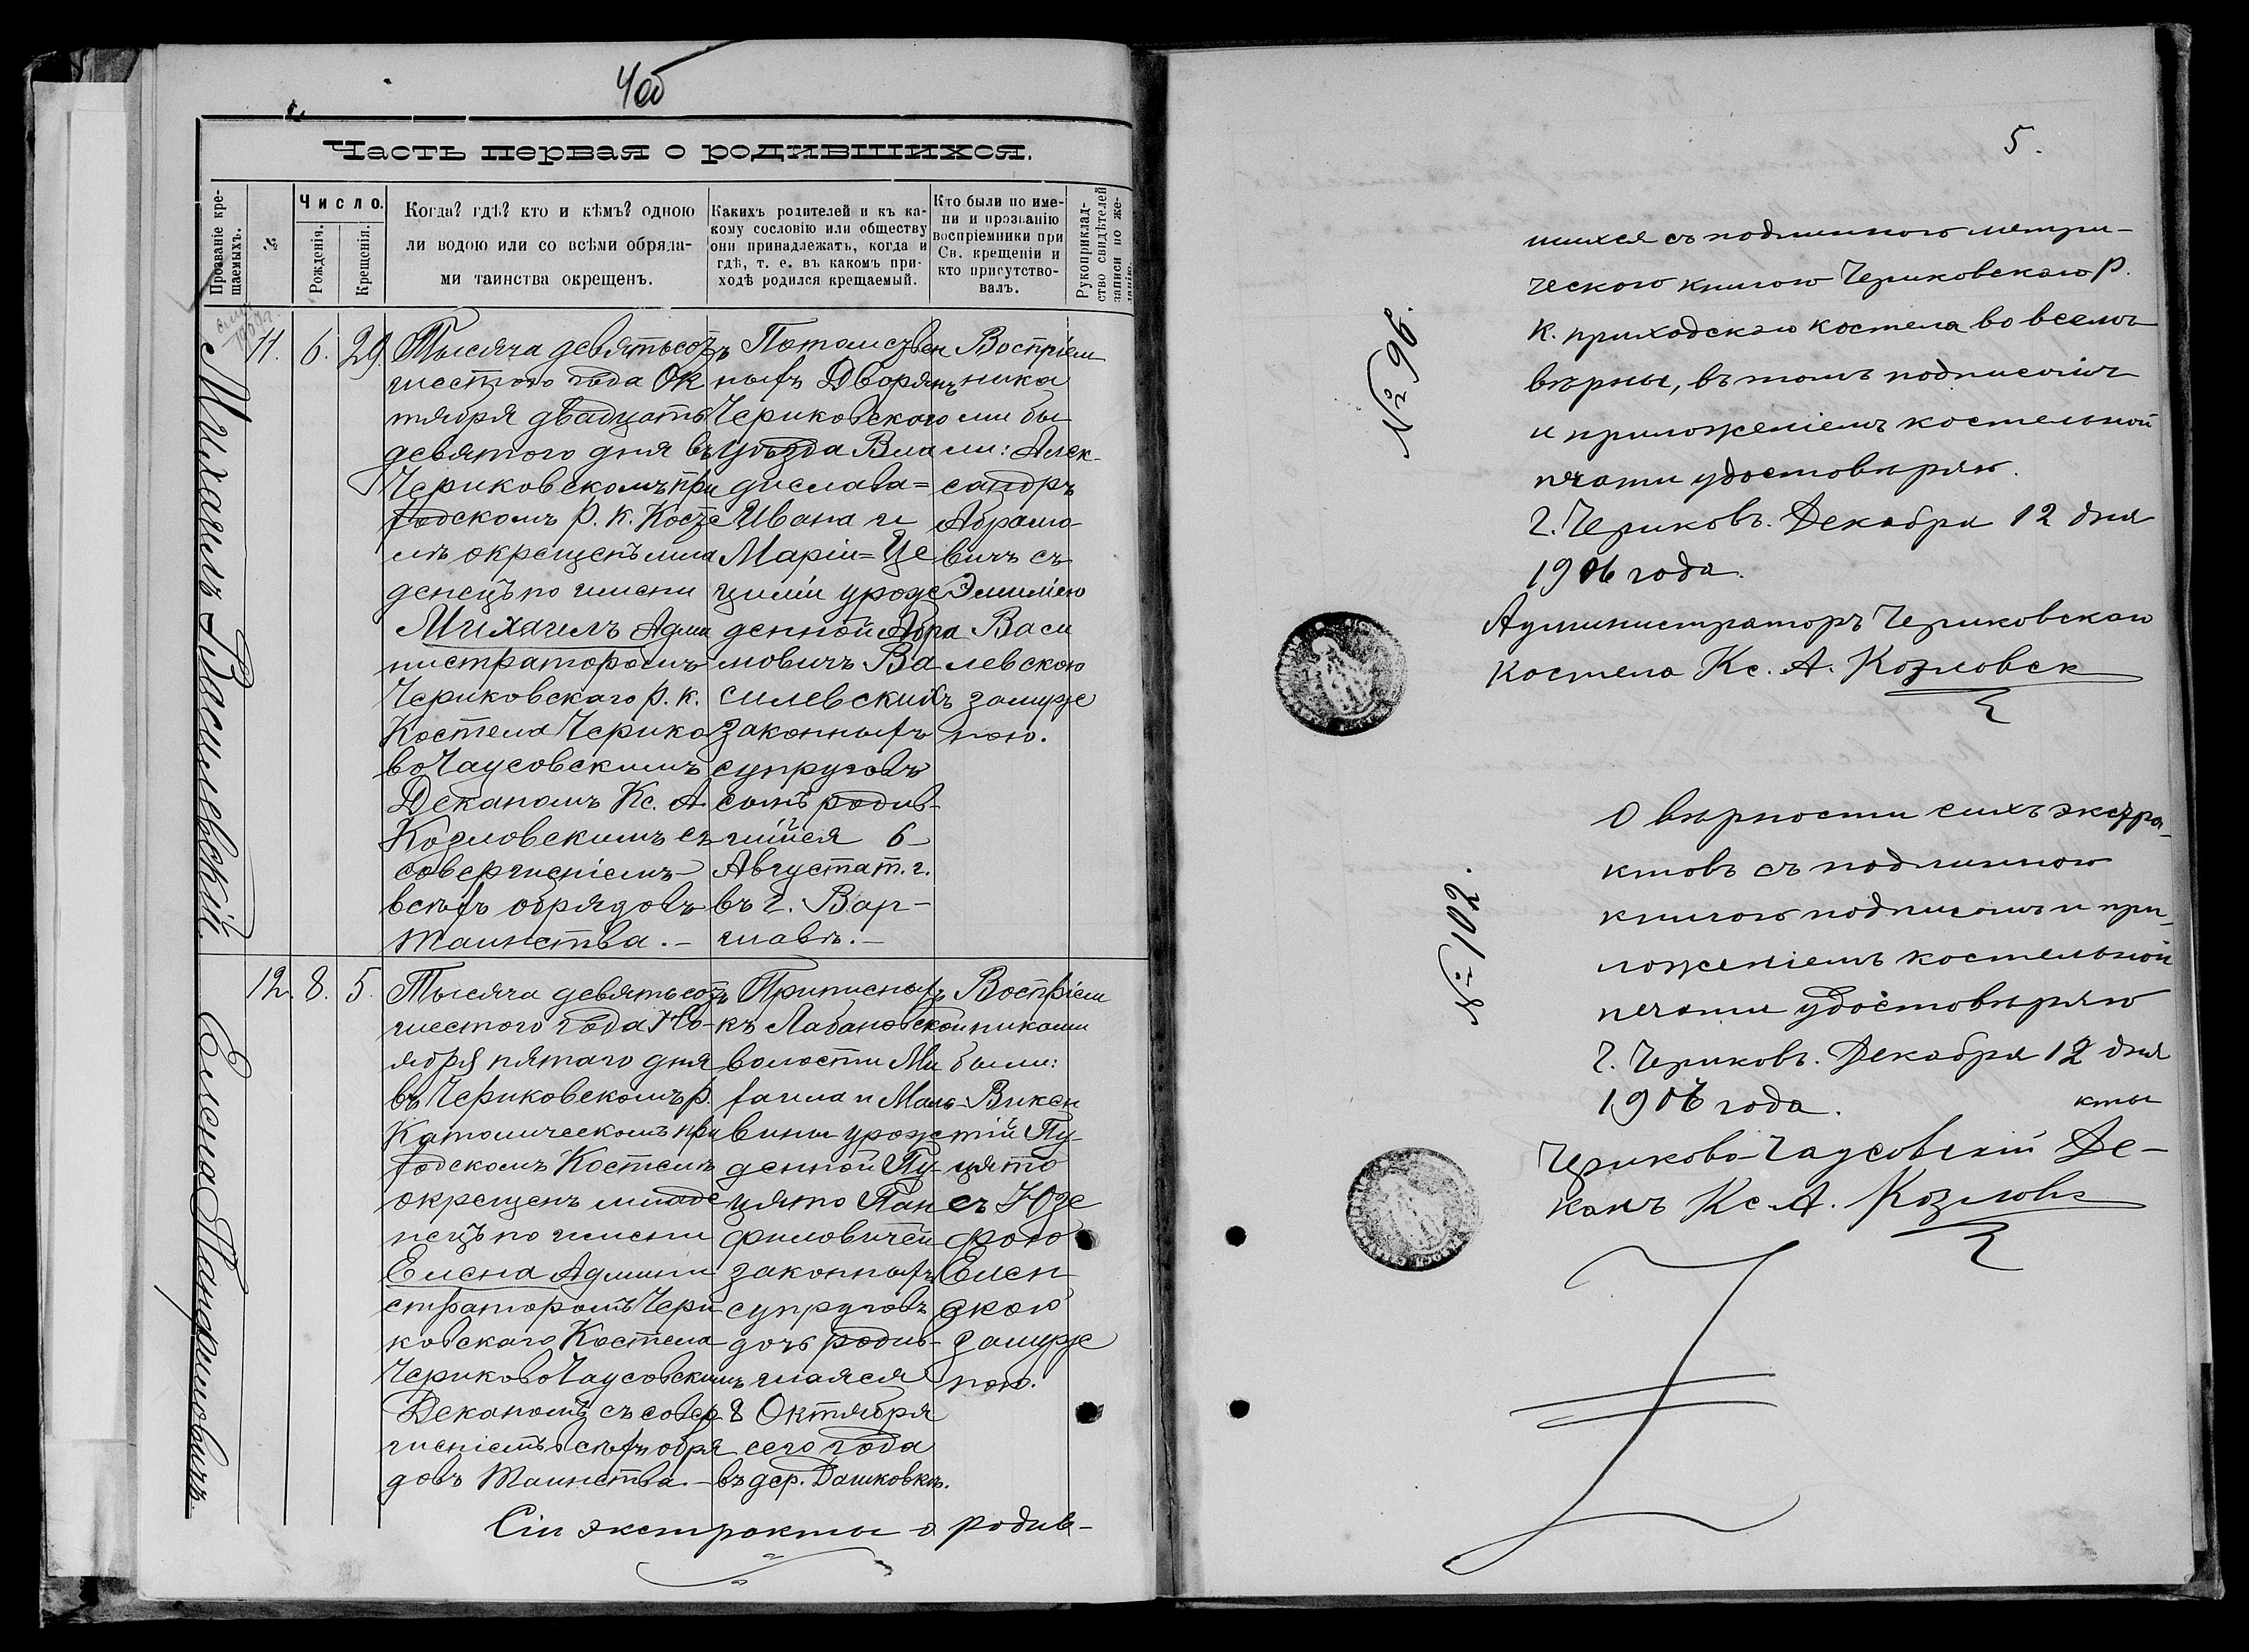 4об
Часть первая о родившихся.
Прозваніе кре-
щаемыхъ.
№
Число.
Рожденія.
Крещенія.
Когда? гдѣ? кто и кѣмъ? одною
ли водою или со всѣми обряда-
ми таинства окрещенъ.
Какихъ родителей и къ ка-
кому сословію или обществу
они принадлежатъ, когда и
гдѣ, т. е. въ какомъ при-
ходѣ родился крещаемый.
Кто были по име-
ни и прозванію
воспріемники при
Св. крещеніи и
кто присутство-
валъ.
Рукоприклад-
ство свидѣтелей
записи по же-
ланію.
Михаилъ Василевскій.
11.
6.
29.
Тысяча девятьсотъ
шестого года Ок
тября двадцать
девятого дня въ
Чериковскомъ при
ходскомъ Р. К. Косте
лѣ окрещенъ мла
денецъ по имени
Михаилъ Адми
нистраторомъ
Чериковскаго р. к.
Костела Черико
во Чаусовскимъ
Деканомъ Кс. А
Козловскимъ съ
совершеніемъ
всѣхъ обрядовъ
таинства. –
Потомствен
ныхъ Дворянъ
Чериковского
уѣзда Вла
дислава=
Ивана и
Маріи= Це
циліи урож
денной Абра
мовичъ Ва
силевскихъ
законныхъ
супруговъ
сынъ родив-
шійся 6
Августа т. г.
въ г. Вар-
шавѣ. –
Воспріем
ника
ми бы
ли: Алек-
сандръ
Абрамо-
вичъ съ
Эмиліею
Васи
левскою
замуж
нею.
Елена Панфиловичъ.
12.
8.
5.
Тысяча девятьсотъ
шестого года Но-
ября пятаго дня
въ Чериковскомъ р.
Католическомъ при
ходскомъ Костелѣ
окрещенъ младе
нецъ по имени
Елена Админи
страторомъ Чери
ковскаго Костела
Чериково Чаусовскимъ
Деканомъ съ совер
шеніемъ всѣхъ обря
довъ таинства. –
Приписныхъ
къ Лобановской
волости Ми
хаила и Маль-
вины урож
денной Пу-
цято Пан
филовичей
законныхъ
супруговъ
дочь родив-
шаяся
8 Октября
сего года
въ дер. Дашковкѣ.
Воспріем
никами
были:
Викен
тій Пу-
цято
съ Юзе
фою
Елен
скою
замуж
нею.
Сіи экстракты о родив-
5.
шихся съ подлинною метри-
ческою книгою Чериковскаго Р.
К. приходскаго костела во всемъ
вѣрны, въ томъ подписомъ
и приложеніемъ костельной
печати удостовѣряю.
г. Чериковъ. Декабря 12 дня
1906 года.
Администраторъ Чериковскаго
Костела Кс. А. Козловск
№ 96.
О вѣрности сихъ экстра-
ктовъ съ подлинною
книгою подписомъ и при-
ложеніемъ костельной
печати удостовѣряю
г. Чериковъ. Декабря 12 дня
1906 года.
Чериково-Чаусовскій Де-
канъ Кс. А. Козловс
№ 102.